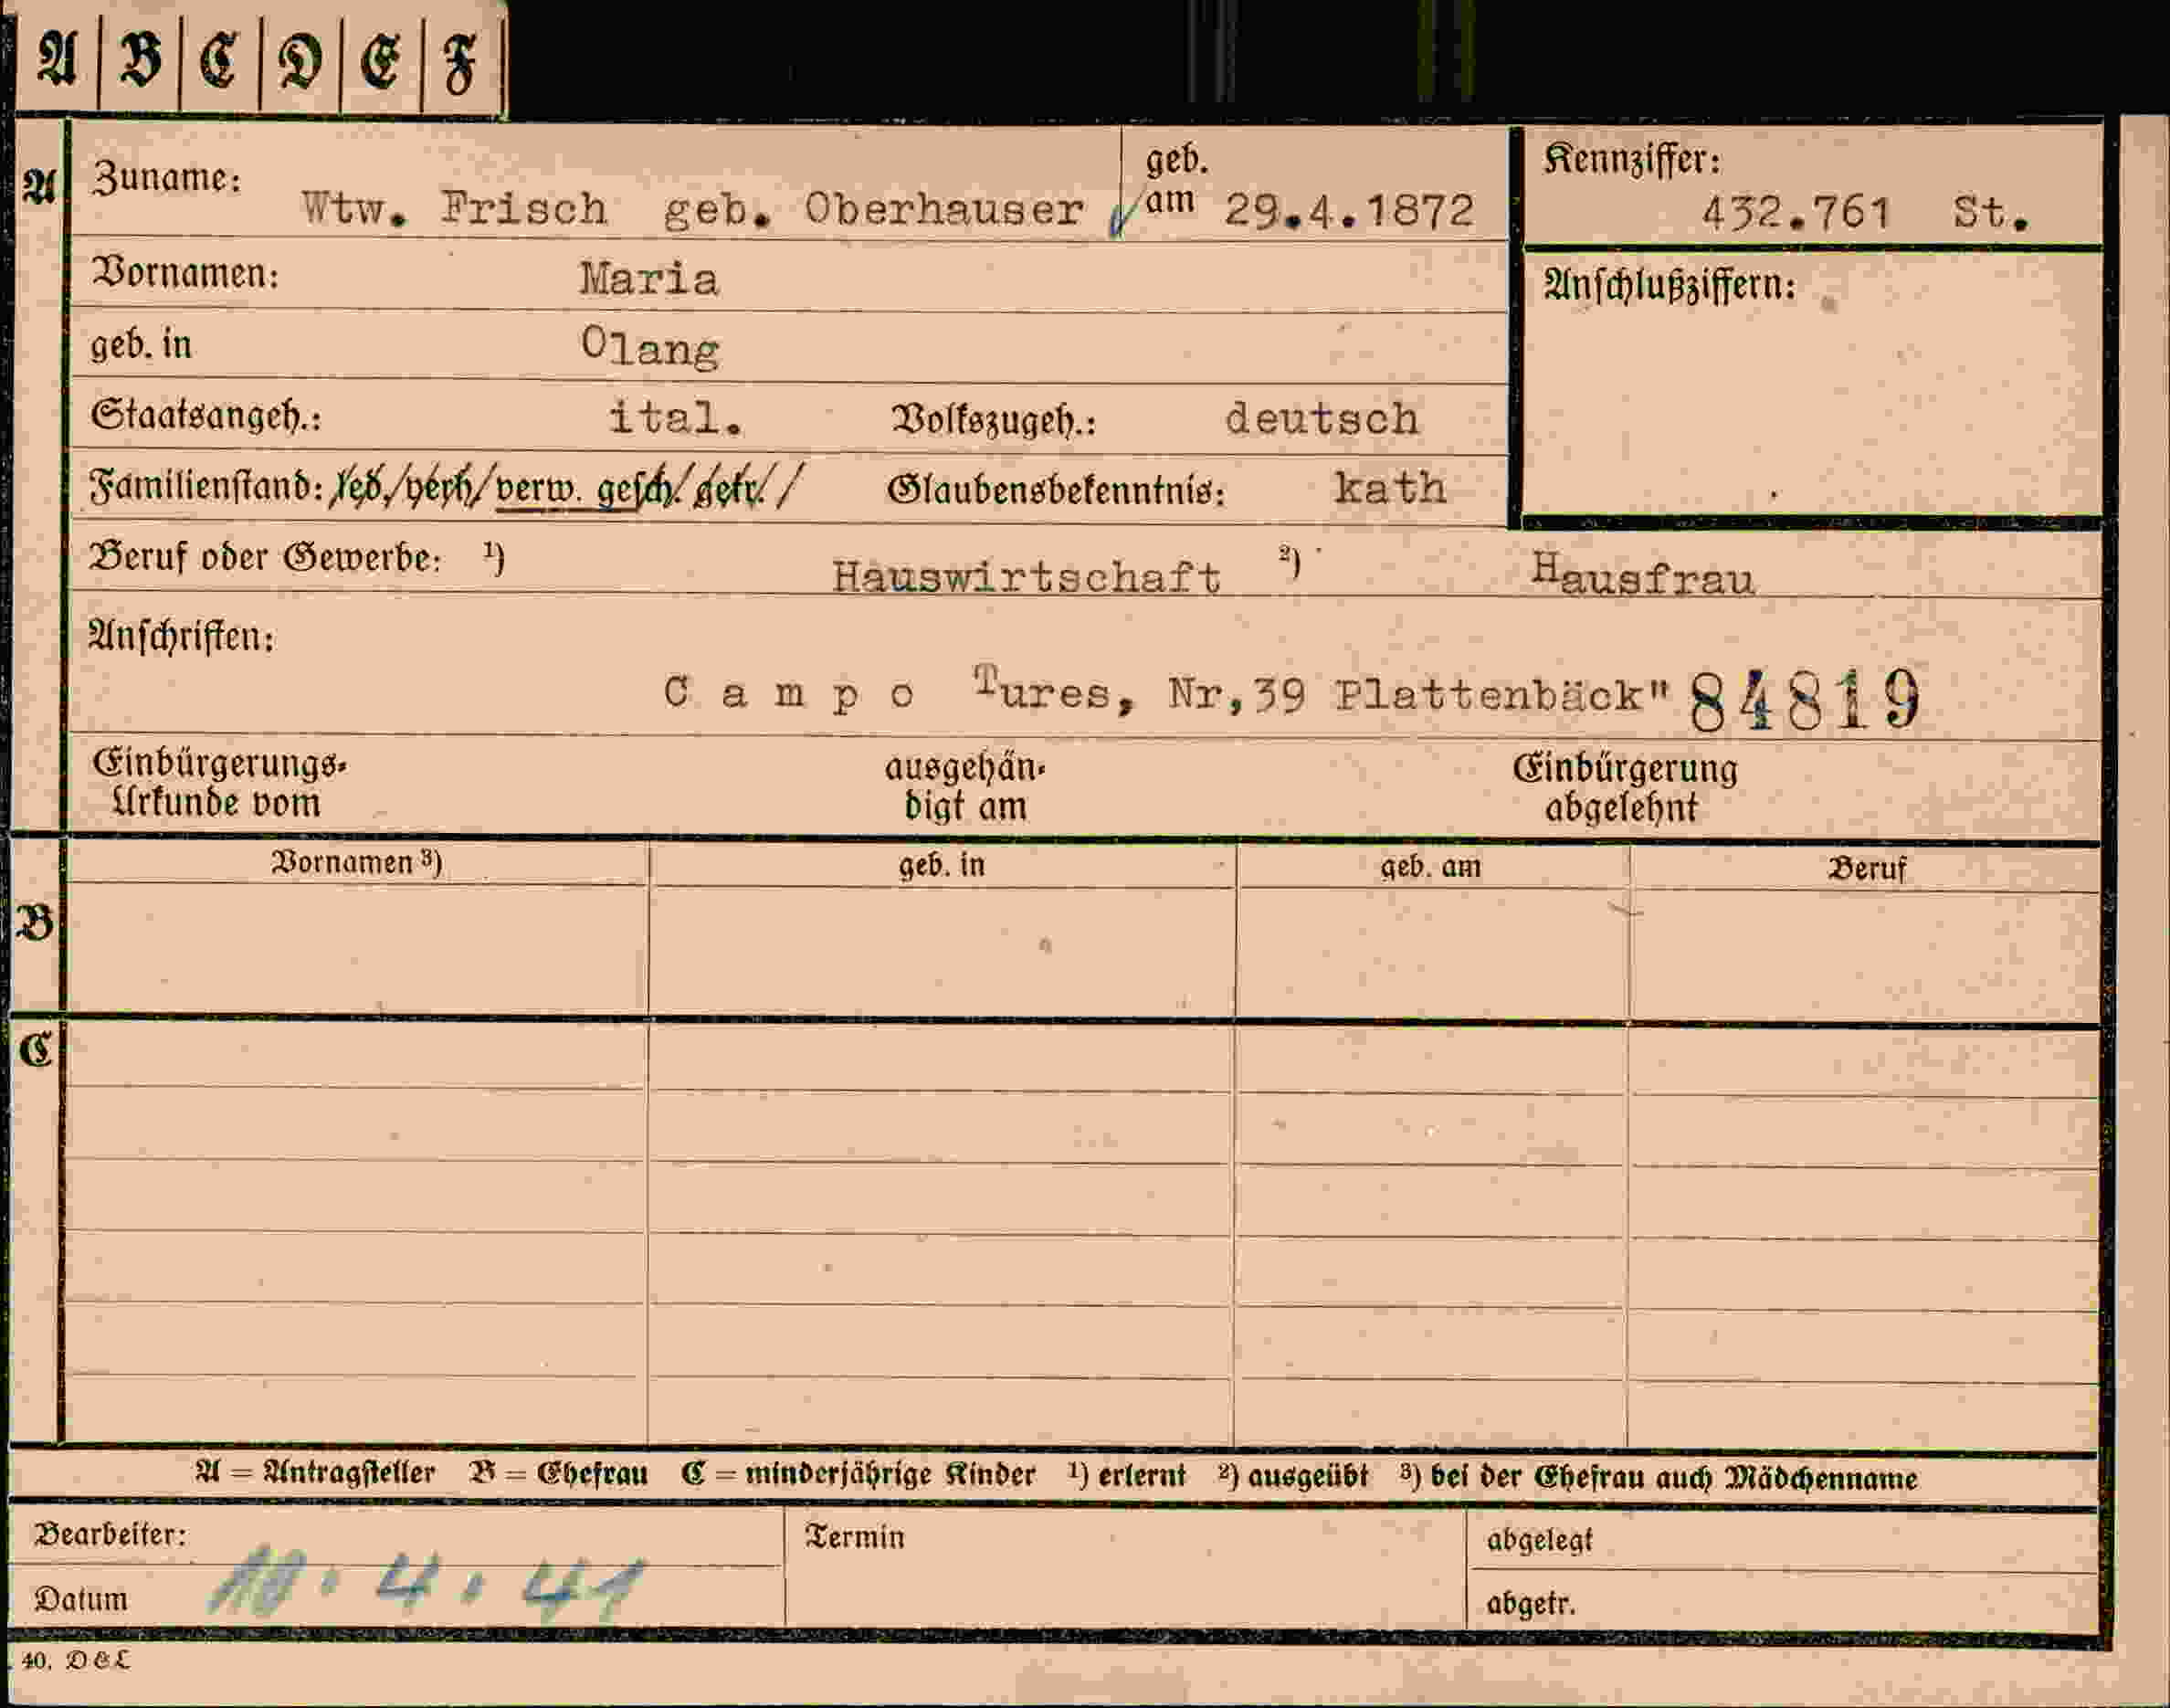 A B C D E F
A Zuname: Wtw. Frisch geb. Oberhauser geb. am 29.4.1872
Kennziffer: 432.761 St.
Vornamen: Maria
Anschlußziffern:
geb. in Olang
Staatsangeh.: ital. Volkszugeh.: deutsch
Familienstand: led./verh/verw. gesch./getr./ Glaubensbekenntnis: kath
Beruf oder Gewerbe: 1) Hauswirtschaft 2) Hausfrau
Anschriften:
Campo Tures, Nr,39 Plattenbäck" 84819
Einbürgerungs- ausgehän- Einbürgerung
Urkunde vom digt am abgelehnt
Vornamen 3) geb. in geb. am Beruf
B
C
A = Antragsteller B = Ehefrau C = minderjährige Kinder 1) erlernt 2) ausgeübt 3) bei der Ehefrau auch Mädchenname
Bearbeiter: Termin abgelegt
Datum 4.41 abgetr.
40. D&L